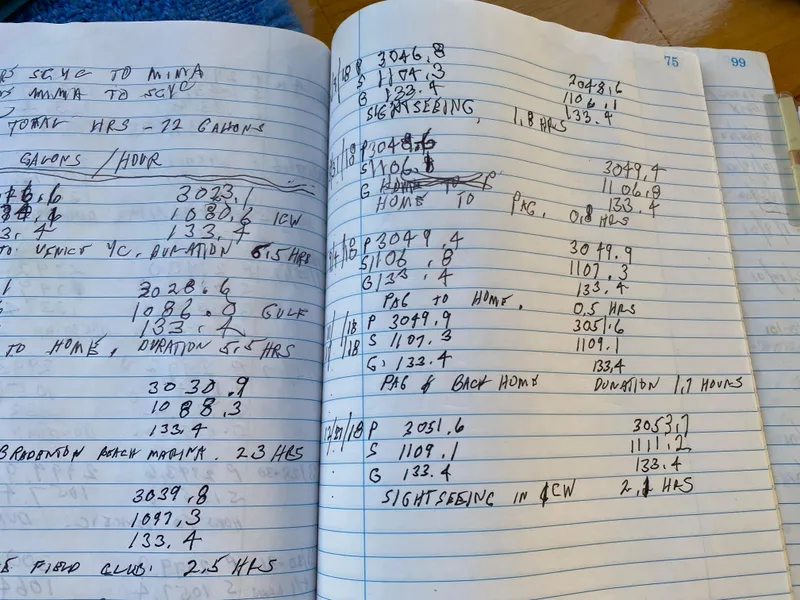 SGYC TO MIMA
MIMA TO SGYC
TOTAL HRS - 22 GALLONS
GALLONS / HOUR
3023.1
1080.6 ICW
133.4
TO VENICE YC. DURATION 5.5 HRS
3028.6
1086.0 GULF
133.4
TO HOME, DURATION 5.5 HRS
3030.9
1088.3
133.4
BRADENTON BEACH MARINA. 2.3 HRS
3039.8
1097.3
133.4
FIELD CLUB. 2.5 HRS
75
99
P 3046.8 2048.6
S 1104.3 1106.1
G 133.4 133.4
SIGHTSEEING, 1.8 HRS
P 3048.6 3049.4
S 1106. 1106.8
G 133.4
HOME TO PAG. 0.8 HRS
P 3049.4 3049.9
S 1106.8 1107.3
G 133.4 133.4
PAG TO HOME. 0.5 HRS
P 3049.9 3051.6
S 1107.3 1109.1
G. 133.4 133.4
PAG & BACK HOME DURATION 1.7 HOURS
P 3051.6 3053.7
S 1109.1 1111.2
G 133.4 133.4
SIGHTSEEING IN ICW 2.1 HRS